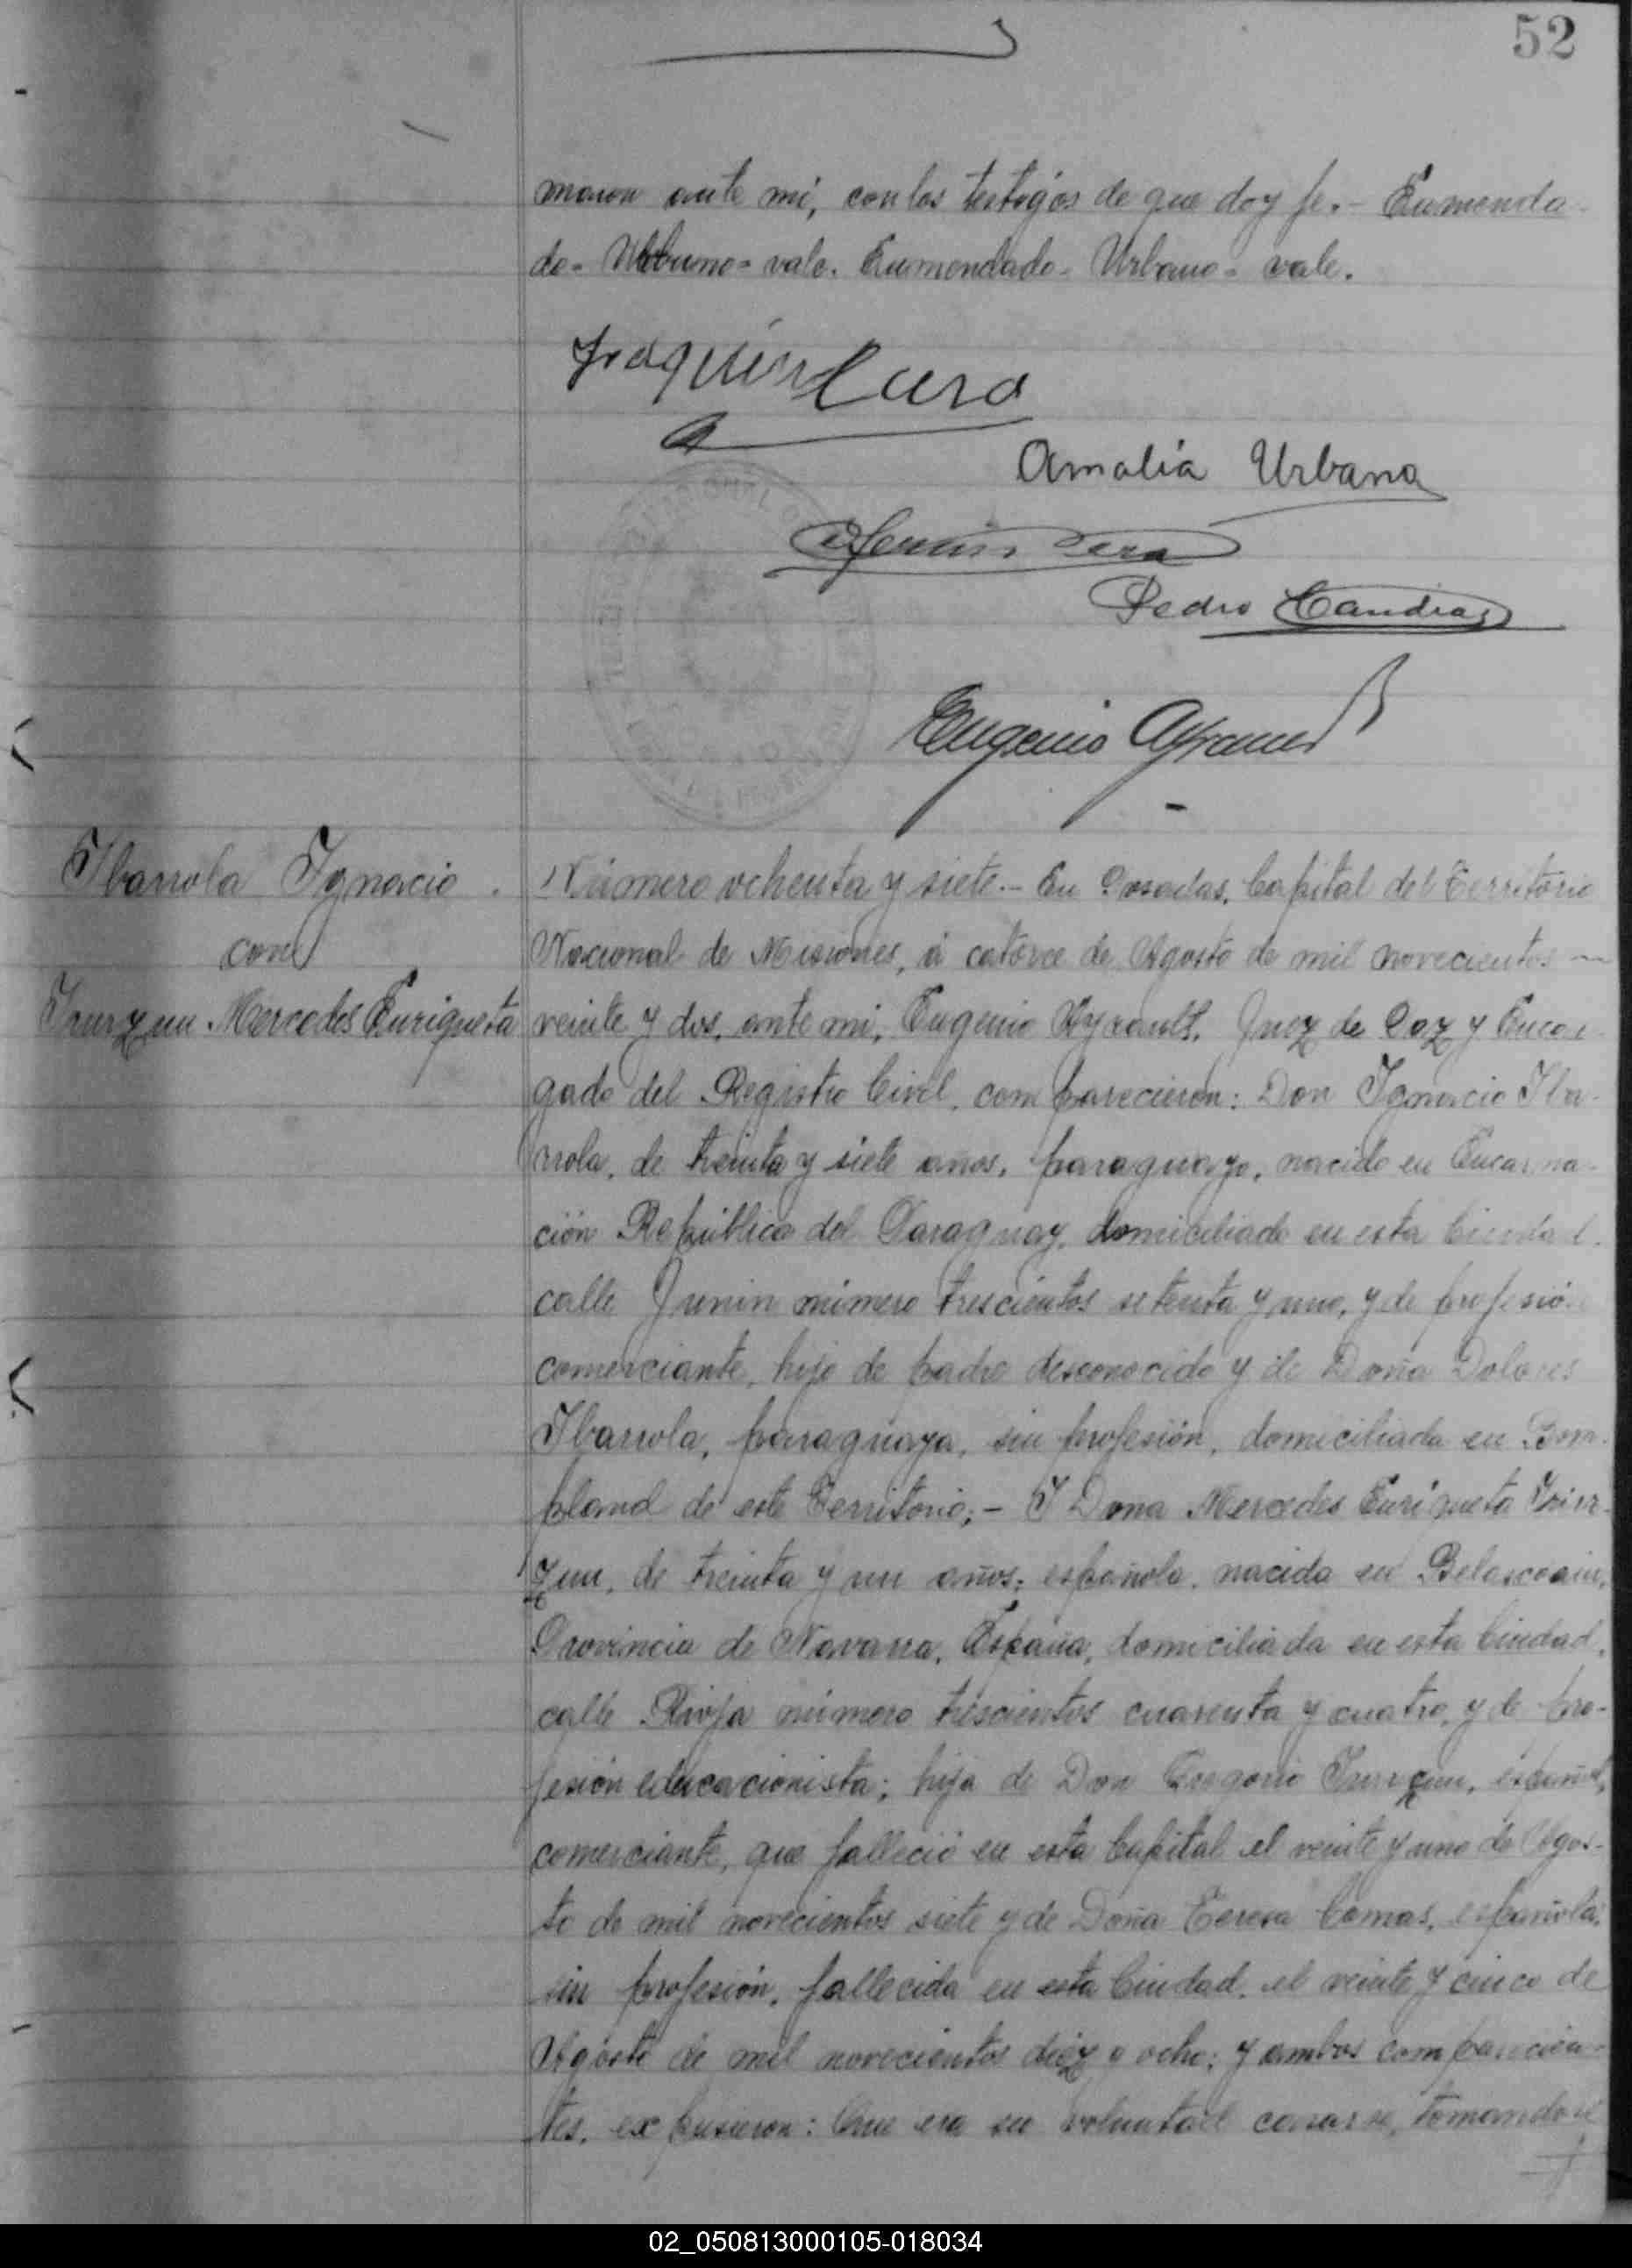 52
maron ante mi, con los testigos de que doy fe.- Enmenda-
do- Urbano= vale. Enmendado- Urbano= vale.
Joaquin Cura
Amalia Urbana
Fermin Vera
Pedro Candia
Eugenio Ayrault
Ibarrola Ignacio
con
Irurzun Mercedes Enriqueta
Número ochenta y siete.- En Posadas, Capital del Territorio
Nacional de Misiones, á catorce de Agosto de mil novecientos
veinte y dos, ante mi, Eugenio Ayrault, Juez de Paz y Encar-
gado del Registro Civil, comparecieron: Don Ignacio Iba-
rrola, de treinta y siete años, paraguayo, nacido en Encarna-
ción República del Paraguay, domiciliado en esta Ciudad,
calle Junin número trescientos setenta y uno, y de profesión
comerciante, hijo de padre desconocido y de Doña Dolores
Ibarrola, paraguaya, sin profesión, domiciliada en Bom-
pland de este Territorio;- I Dona Mercedes Enriqueta Irur-
zun, de treinta y un años; española, nacida en Belascoain,
Provincia de Navarra, España, domiciliada en esta Ciudad,
calle Rioja número trescientos cuarenta y cuatro, y de pro-
fesión educacionista; hija de Don Gregorio Irurzun, español,
comerciante, que falleció en esta Capital el veinte y uno de Agos-
to de mil novecientos siete y de Doña Teresa Comas, española,
sin profesión, fallecida en esta Ciudad, el veinte y cinco de
Agosto de mil novecientos diez y ocho; y ambos comparecien-
tes, expusieron: Que era su voluntad casarse, tomandose
02_050813000105-018034